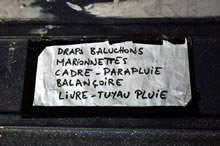 DRAPS BALUCHONS
MARIONNETTES
CADRE - PARAPLUIE
BALANÇOIRE
LIVRE - TUYAU PLUIE